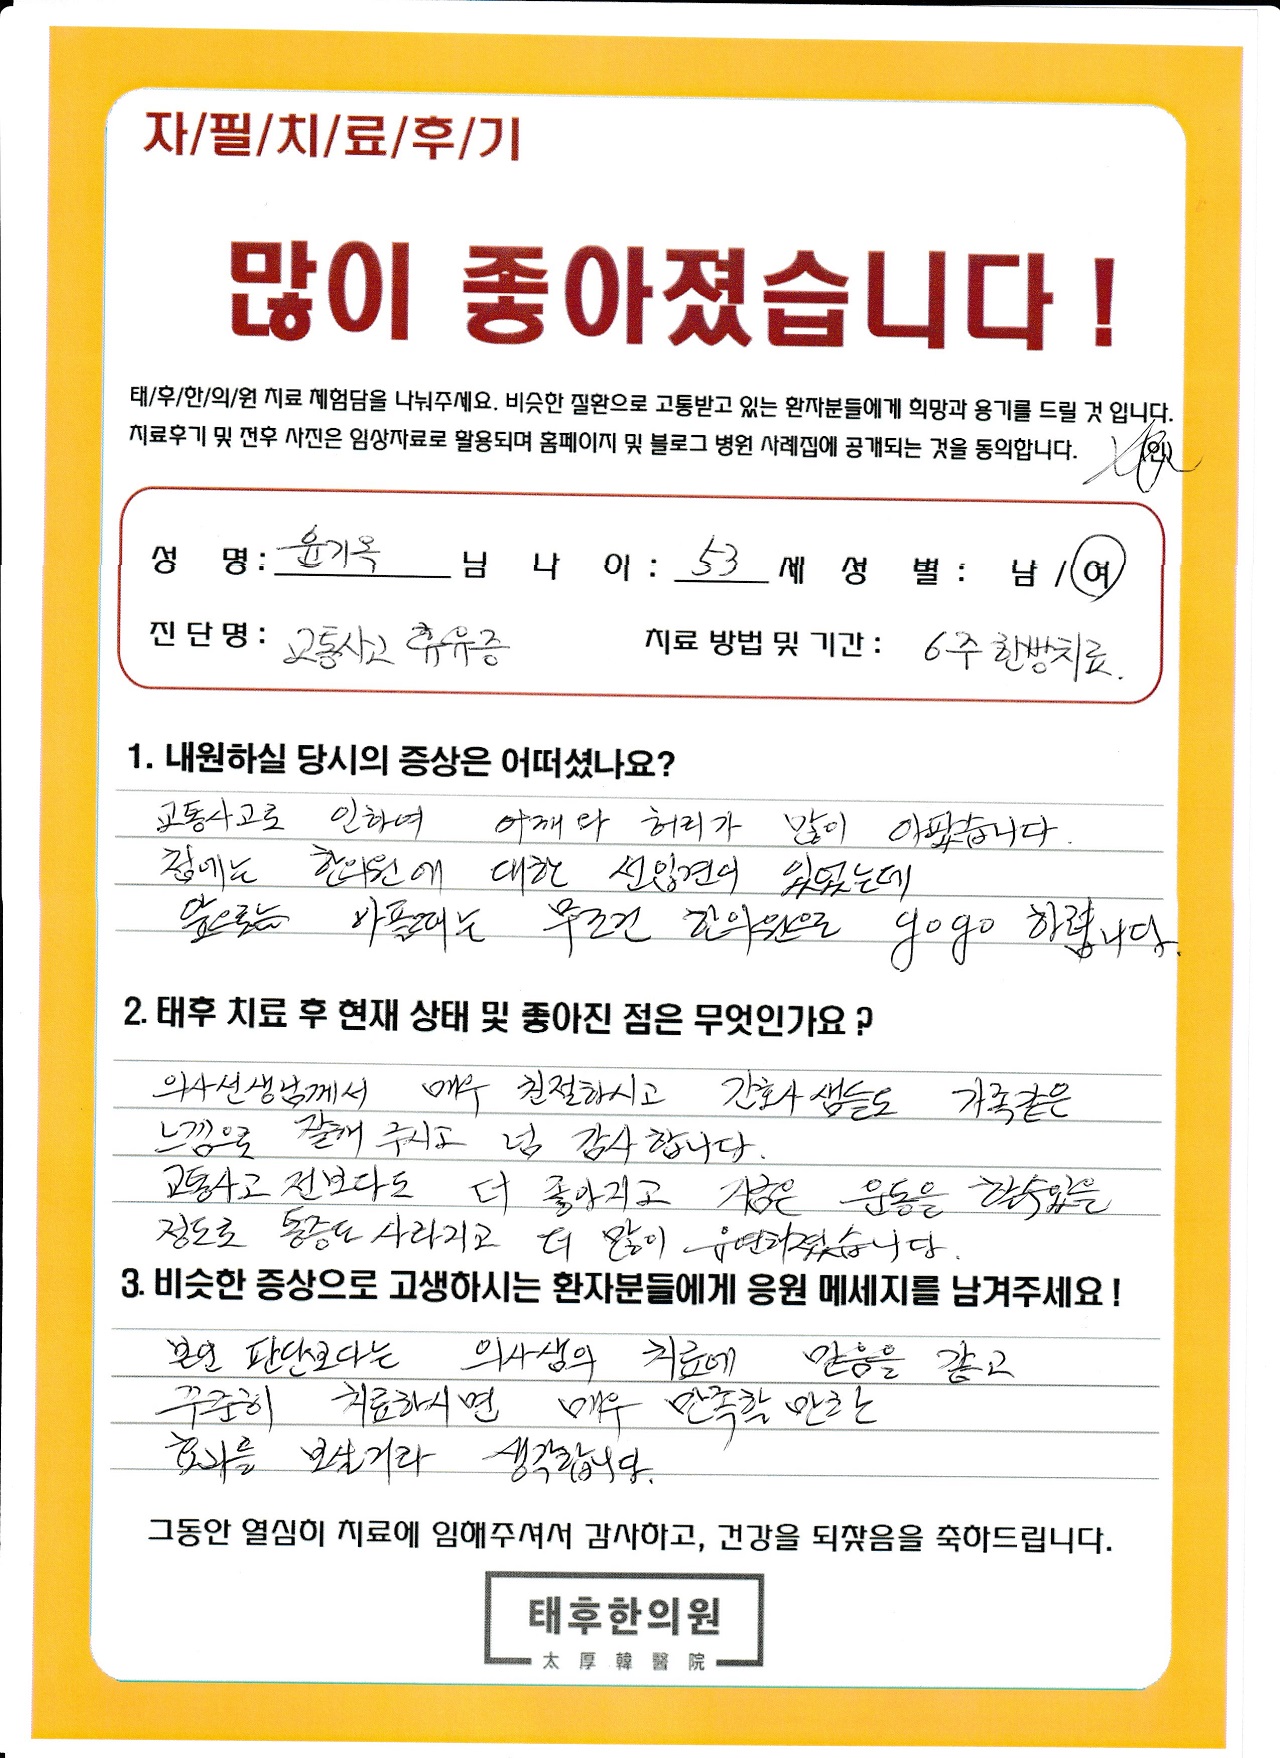 자/필/치/료/후/기
많이 좋아졌습니다!
태/후/한/의/원 치료 체험담을 나눠주세요. 비슷한 질환으로 고통받고 있는 환자분들에게 희망과 용기를 드릴 것 입니다.
치료후기 및 전후 사진은 임상자료로 활용되며 홈페이지 및 블로그 병원 사례집에 공개되는 것을 동의합니다. (인)
성 명: 윤기옥 님 나 이: 53 세 성 별: 남/여
진단명: 교통사고 휴유증 치료 방법 및 기간: 6주 한방치료.
1. 내원하실 당시의 증상은 어떠셨나요?
교통사고로 인하여 어깨와 허리가 많이 아팠습니다.
전에는 한의원에 대한 선입견이 있었는데
앞으로는 아플때는 무조건 한의원으로 gogo 하렵니다.
2. 태후 치료 후 현재 상태 및 좋아진 점은 무엇인가요?
의사선생님께서 매우 친절하시고 간호사 샘들도 가족같은
느낌으로 잘해 주시고 넘 감사합니다.
교통사고 전보다도 더 좋아지고 지금은 운동을 할수있을
정도로 통증도 사라지고 더 많이 유연해졌습니다.
3. 비슷한 증상으로 고생하시는 환자분들에게 응원 메세지를 남겨주세요!
본인 판단보다는 의사샘의 치료에 믿음을 갖고
꾸준히 치료하시면 매우 만족할 만한
효과를 보실거라 생각합니다.
그동안 열심히 치료에 임해주셔서 감사하고, 건강을 되찾음을 축하드립니다.
태후한의원
太厚韓醫院